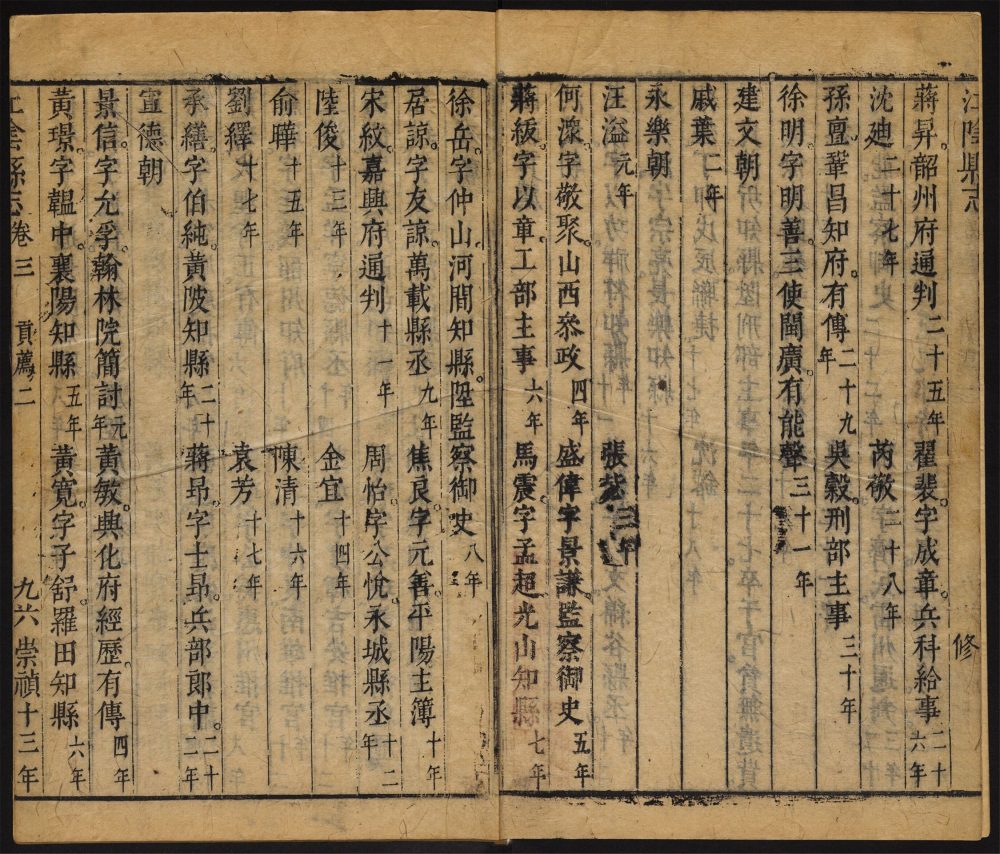 江陰縣志 修
蔣昇。韶州府通判二十五年 翟裴。字成章。兵科給事二十六年
沈廸二十七年 芮敬二十八年
孫亶。鞏昌知府。有傳二十九年 吳穀。刑部主事三十年
徐明。字明善。三使閩廣。有能聲三十一年
建文朝
戚葉二年
永樂朝
汪溢元年 張 三年
何濚。字敬聚。山西叅政四年 盛偉。字景謙。監察御史五年
蔣級。字以童。工部主事六年 馬震。字孟超。光山知縣七年
徐岳。字仲山。河間知縣。陞監察御史八年
居諒。字友諒。萬載縣丞九年 焦良。字元善。平陽主簿十年
宋紋。嘉興府通判十一年 周怡。字公悅。永城縣丞十二年
陸俊十三年 金宜十四年
俞曄十五年 陳清十六年
劉繹十七年 袁芳十七年
承繕。字伯純。黃陂知縣二十年 蔣昻。字士昻。兵部郎中。二十二年
宣德朝
景信。字允孚。翰林院簡討元年 黃敏。興化府經歷。有傳四年
黃璟。字韞中。襄陽知縣五年 黃寬。字子舒。羅田知縣六年
江陰縣志卷三 貢薦二 九六 崇禎十三年